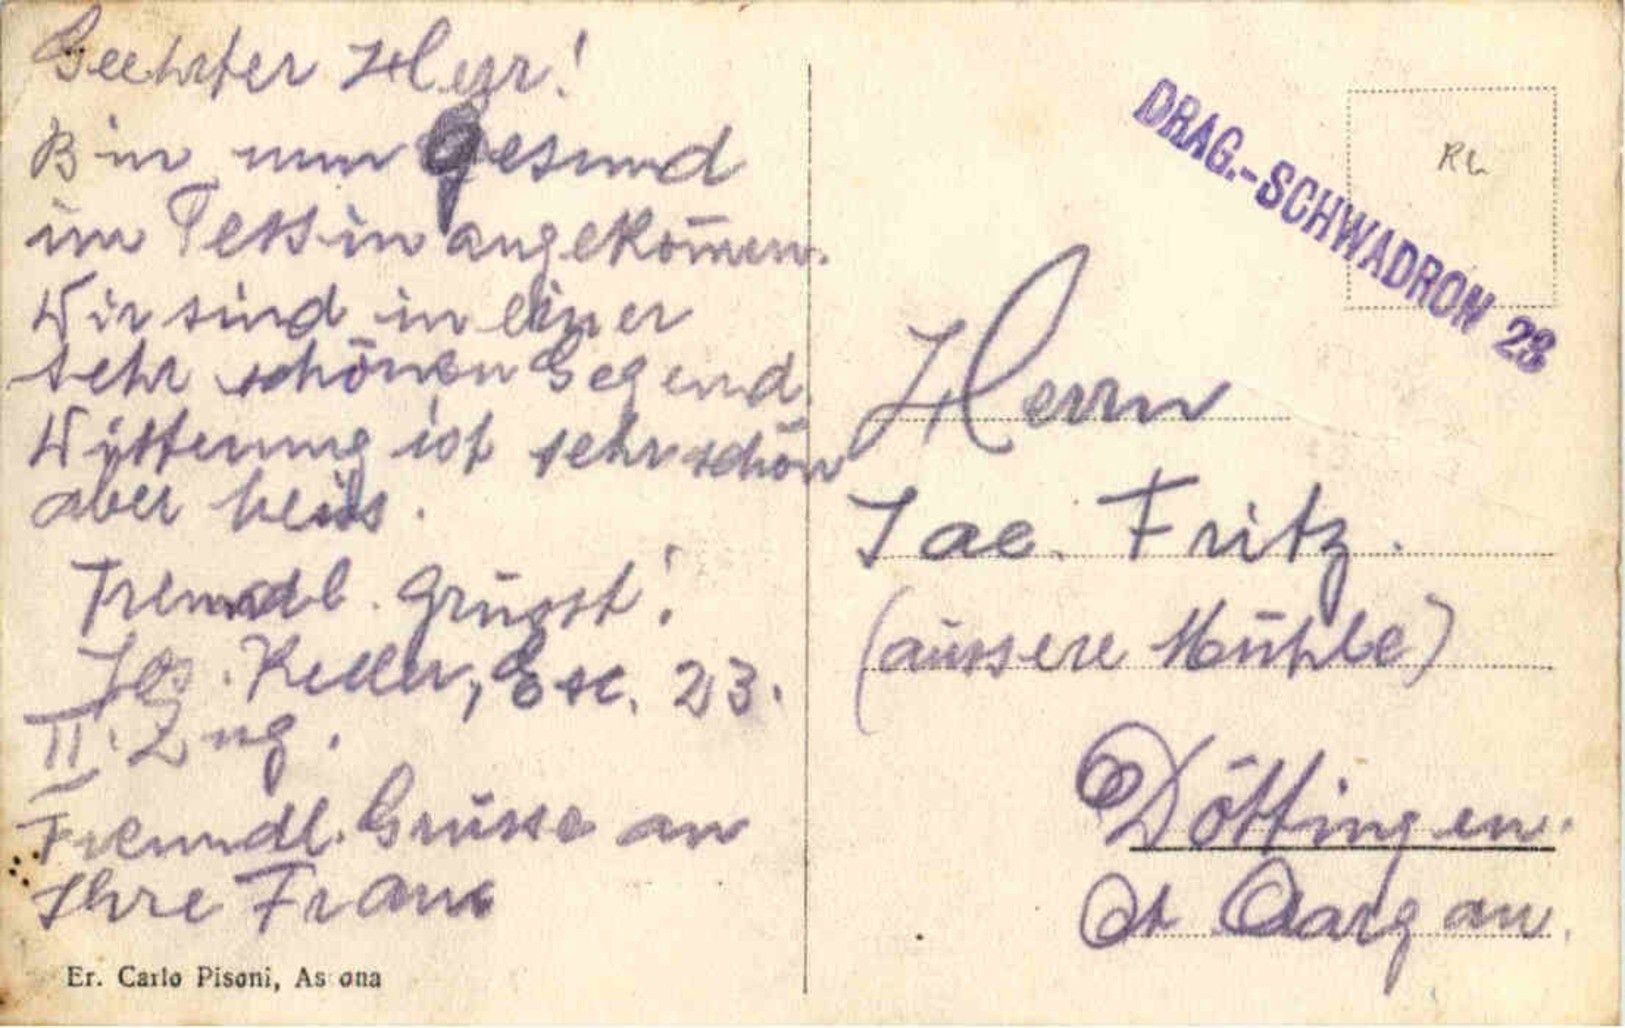 Geehrter Herr!
Bin nun Gesund
im Tessin angekom̄en.
Wir sind in einer
sehr schönen Gegend.
Witterung ist sehr schön
aber heiss.
Freundl. Grüsst!
Jos. Keller, Esc. 23.
II. Zug.
Freundl. Grüsse an
Ihre Frau
Er. Carlo Pisoni, Ascona
DRAG.-SCHWADRON 23
Herrn
Jac. Fritz.
(äussere Mühle)
Döttingen.
Ct Aargau.